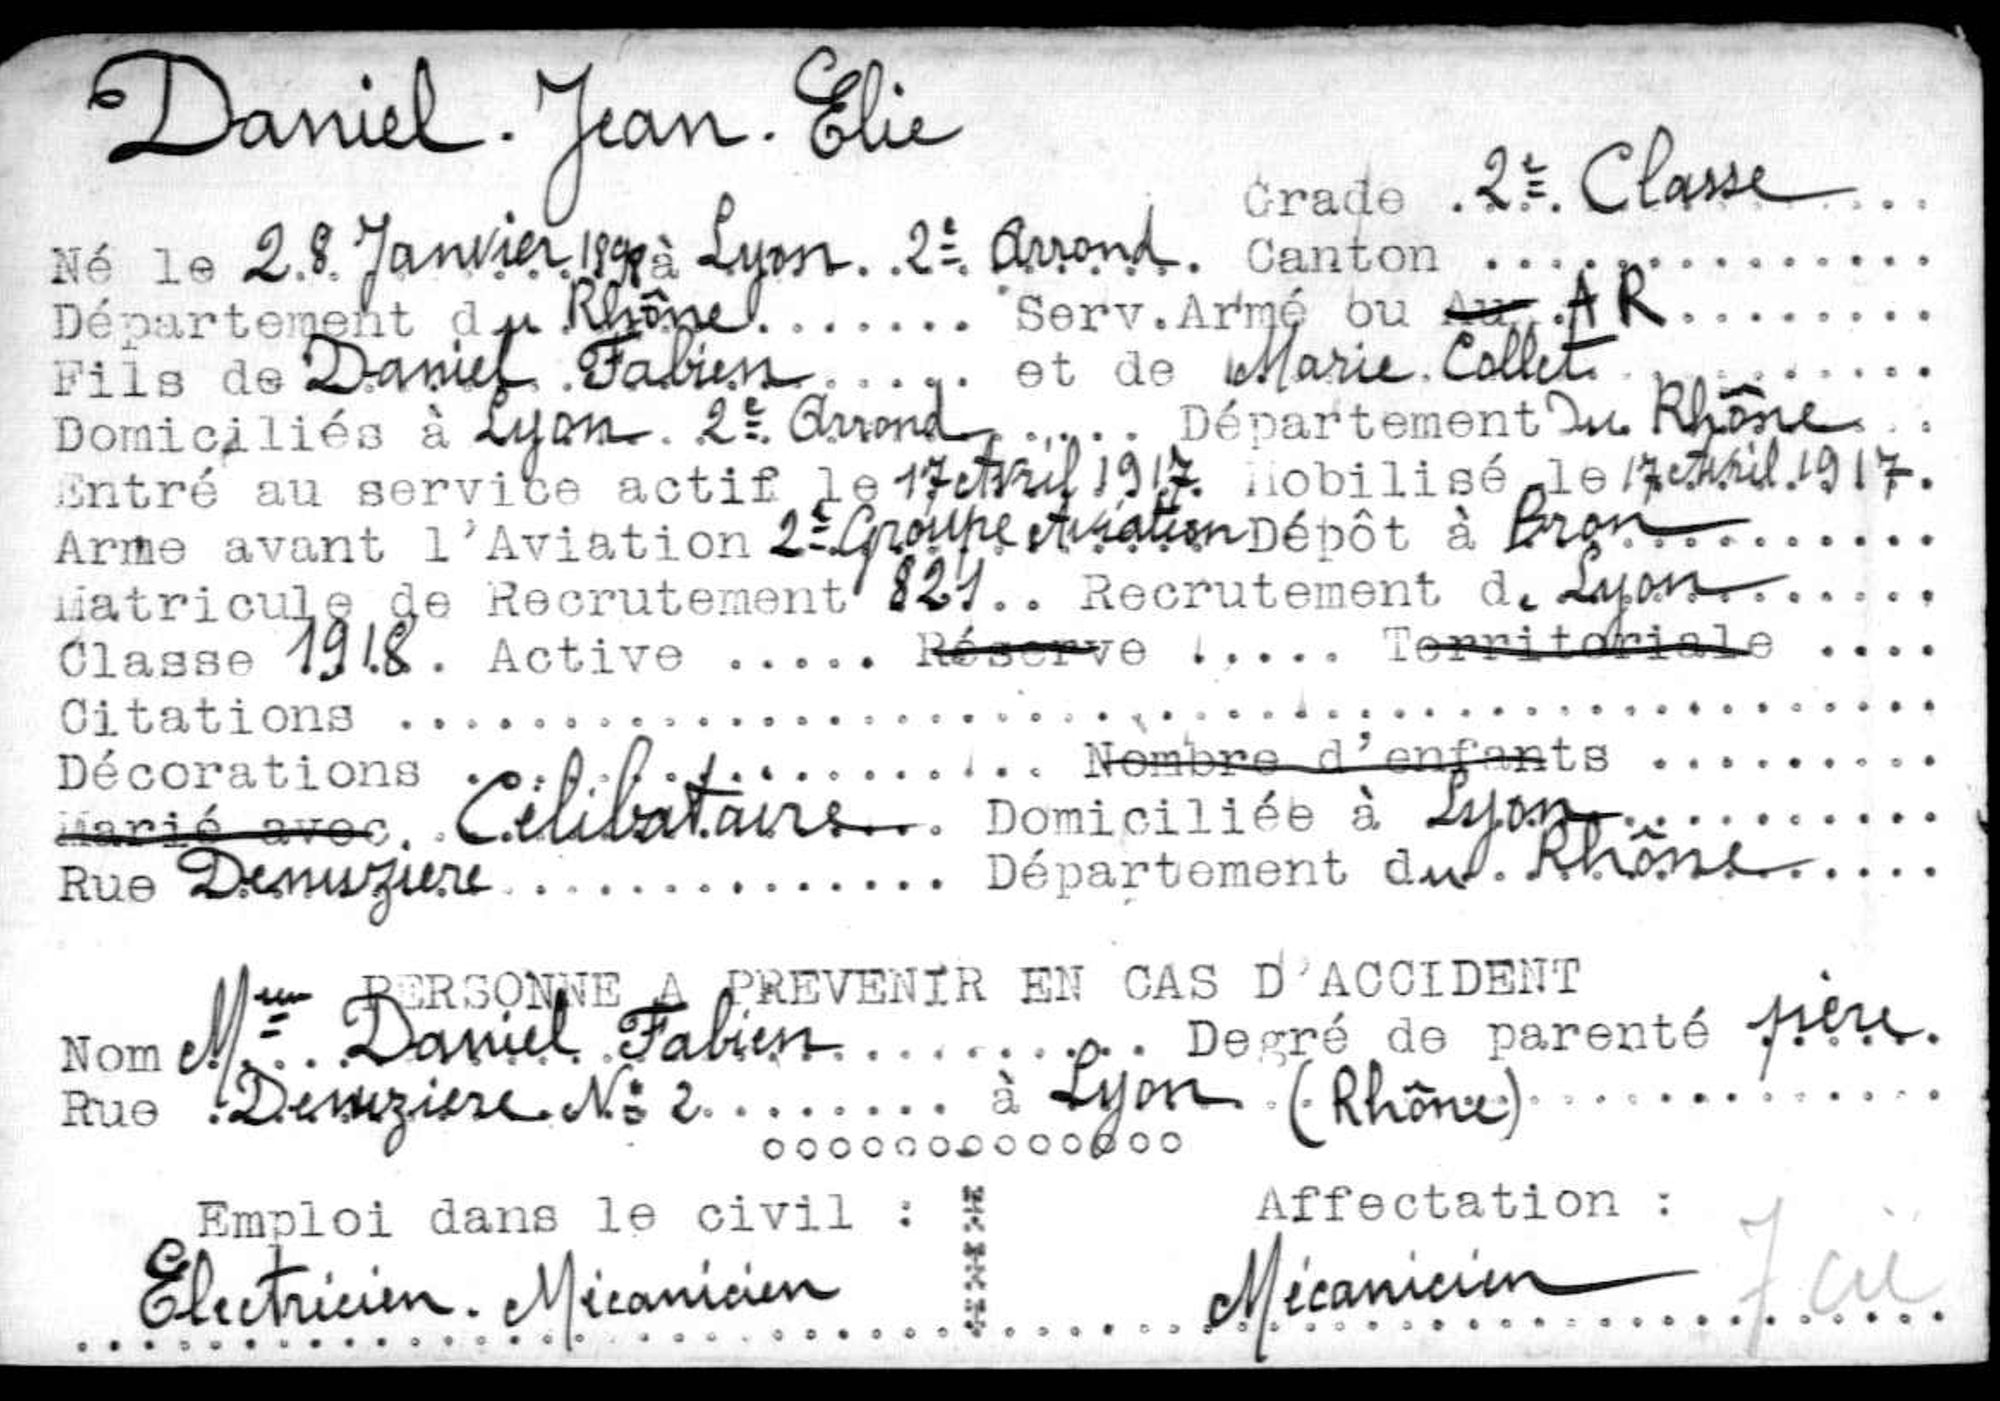 Daniel. Jean. Elie
Grade 2e Classe
Né le 28 Janvier 1898 à Lyon. 2e Arrond. Canton
Département du Rhône Serv.Armé ou Au AR
Fils de Daniel Fabien et de Marie Collet
Domiciliés à Lyon. 2e Arrond Département Du Rhône
Entré au service actif le 17 Avril 1917. Mobilisé le 17 Avril 1917.
Arme avant l'Aviation 2e Groupe Aviation Dépôt à Bron
Matricule de Recrutement 821 Recrutement d. Lyon
Classe 1918. Active ..... Réserve ..... Territoriale ....
Citations
Décorations Nombre d'enfants
Marié avec Célibataire Domiciliée à Lyon
Rue Denuziere Département du Rhône
PERSONNE A PREVENIR EN CAS D'ACCIDENT
Nom Daniel Fabien Degré de parenté père.
Rue Denuziere No 2 à Lyon (Rhône)
oooooooooooooo
Emploi dans le civil : Affectation :
Electricien. Mécanicien Mécanicien